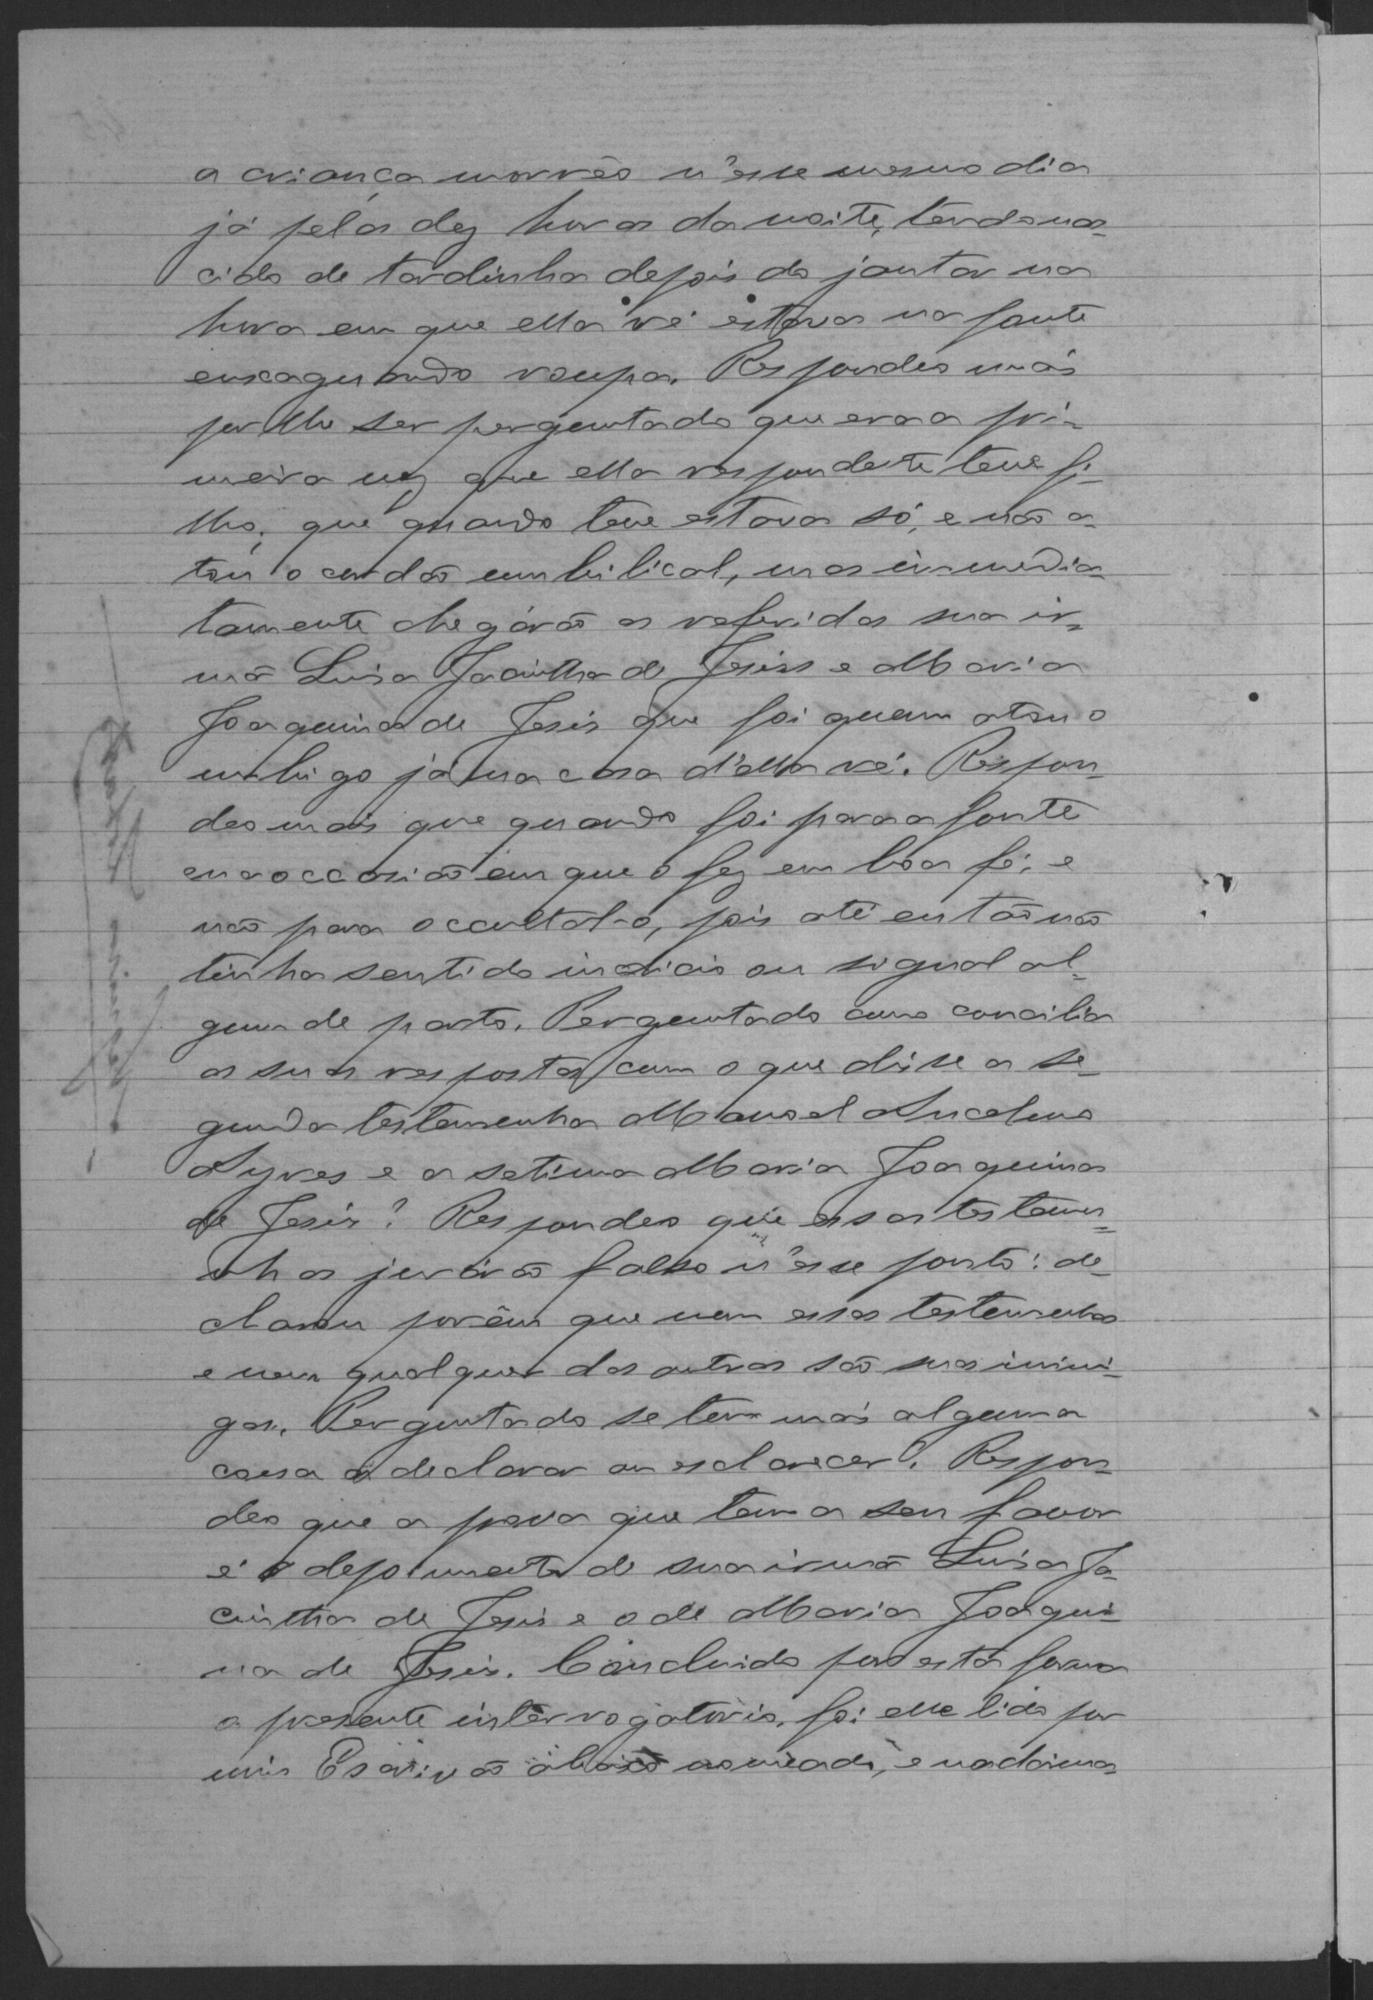 a criança morrêo n'esse mesmo dia
já pelas dez horas da noite, tendo nas-
cido de tardinha depois do jantar na
hora em que ella ré estava na fonte
enxaguando roupa. Respondeo mais
por lhe ser perguntado que era a pri-
meira vez que ella respondente teve fi-
lho; que quando teve estava só, e não a-
tou o cordão umbilical, mas immedia-
tamente chegárão as referidas sua ir-
mã Luisa Jacintha de Jesus e Maria
Joaquina de Jesus que foi quem atou o
umbigo já na casa d'ella ré. Respon-
deo mais que quando foi para a fonte
na occasião em que o fez em boa fé; e
não para occultal-o, pois até então não
tinha sentido indicio ou signal al-
gum de parto. Perguntado como concilia
as suas respostas com o que disse a se-
gunda testemunha Manoel
e a setima Maria Joaquina
de Jesus? Respondeo que essas testemu-
nhas jurárão falso n'esse ponto: de-
clarou porêm que nem essas testemunhas
e nem qualquer das outras são suas inimi-
gas. Perguntado se tem mais alguma
cousa a declarar ou esclarecer? Respon-
deo que a prova que tem a seu favor
é o depoimento de sua irmã Luisa Ja-
cintha de Jesus e o de Maria Joaqui-
na de Jesus. Concluido por esta forma
o presente interrogatorio, foi elle lido por
mim Escrivão abaixo nomeado, e nada mas